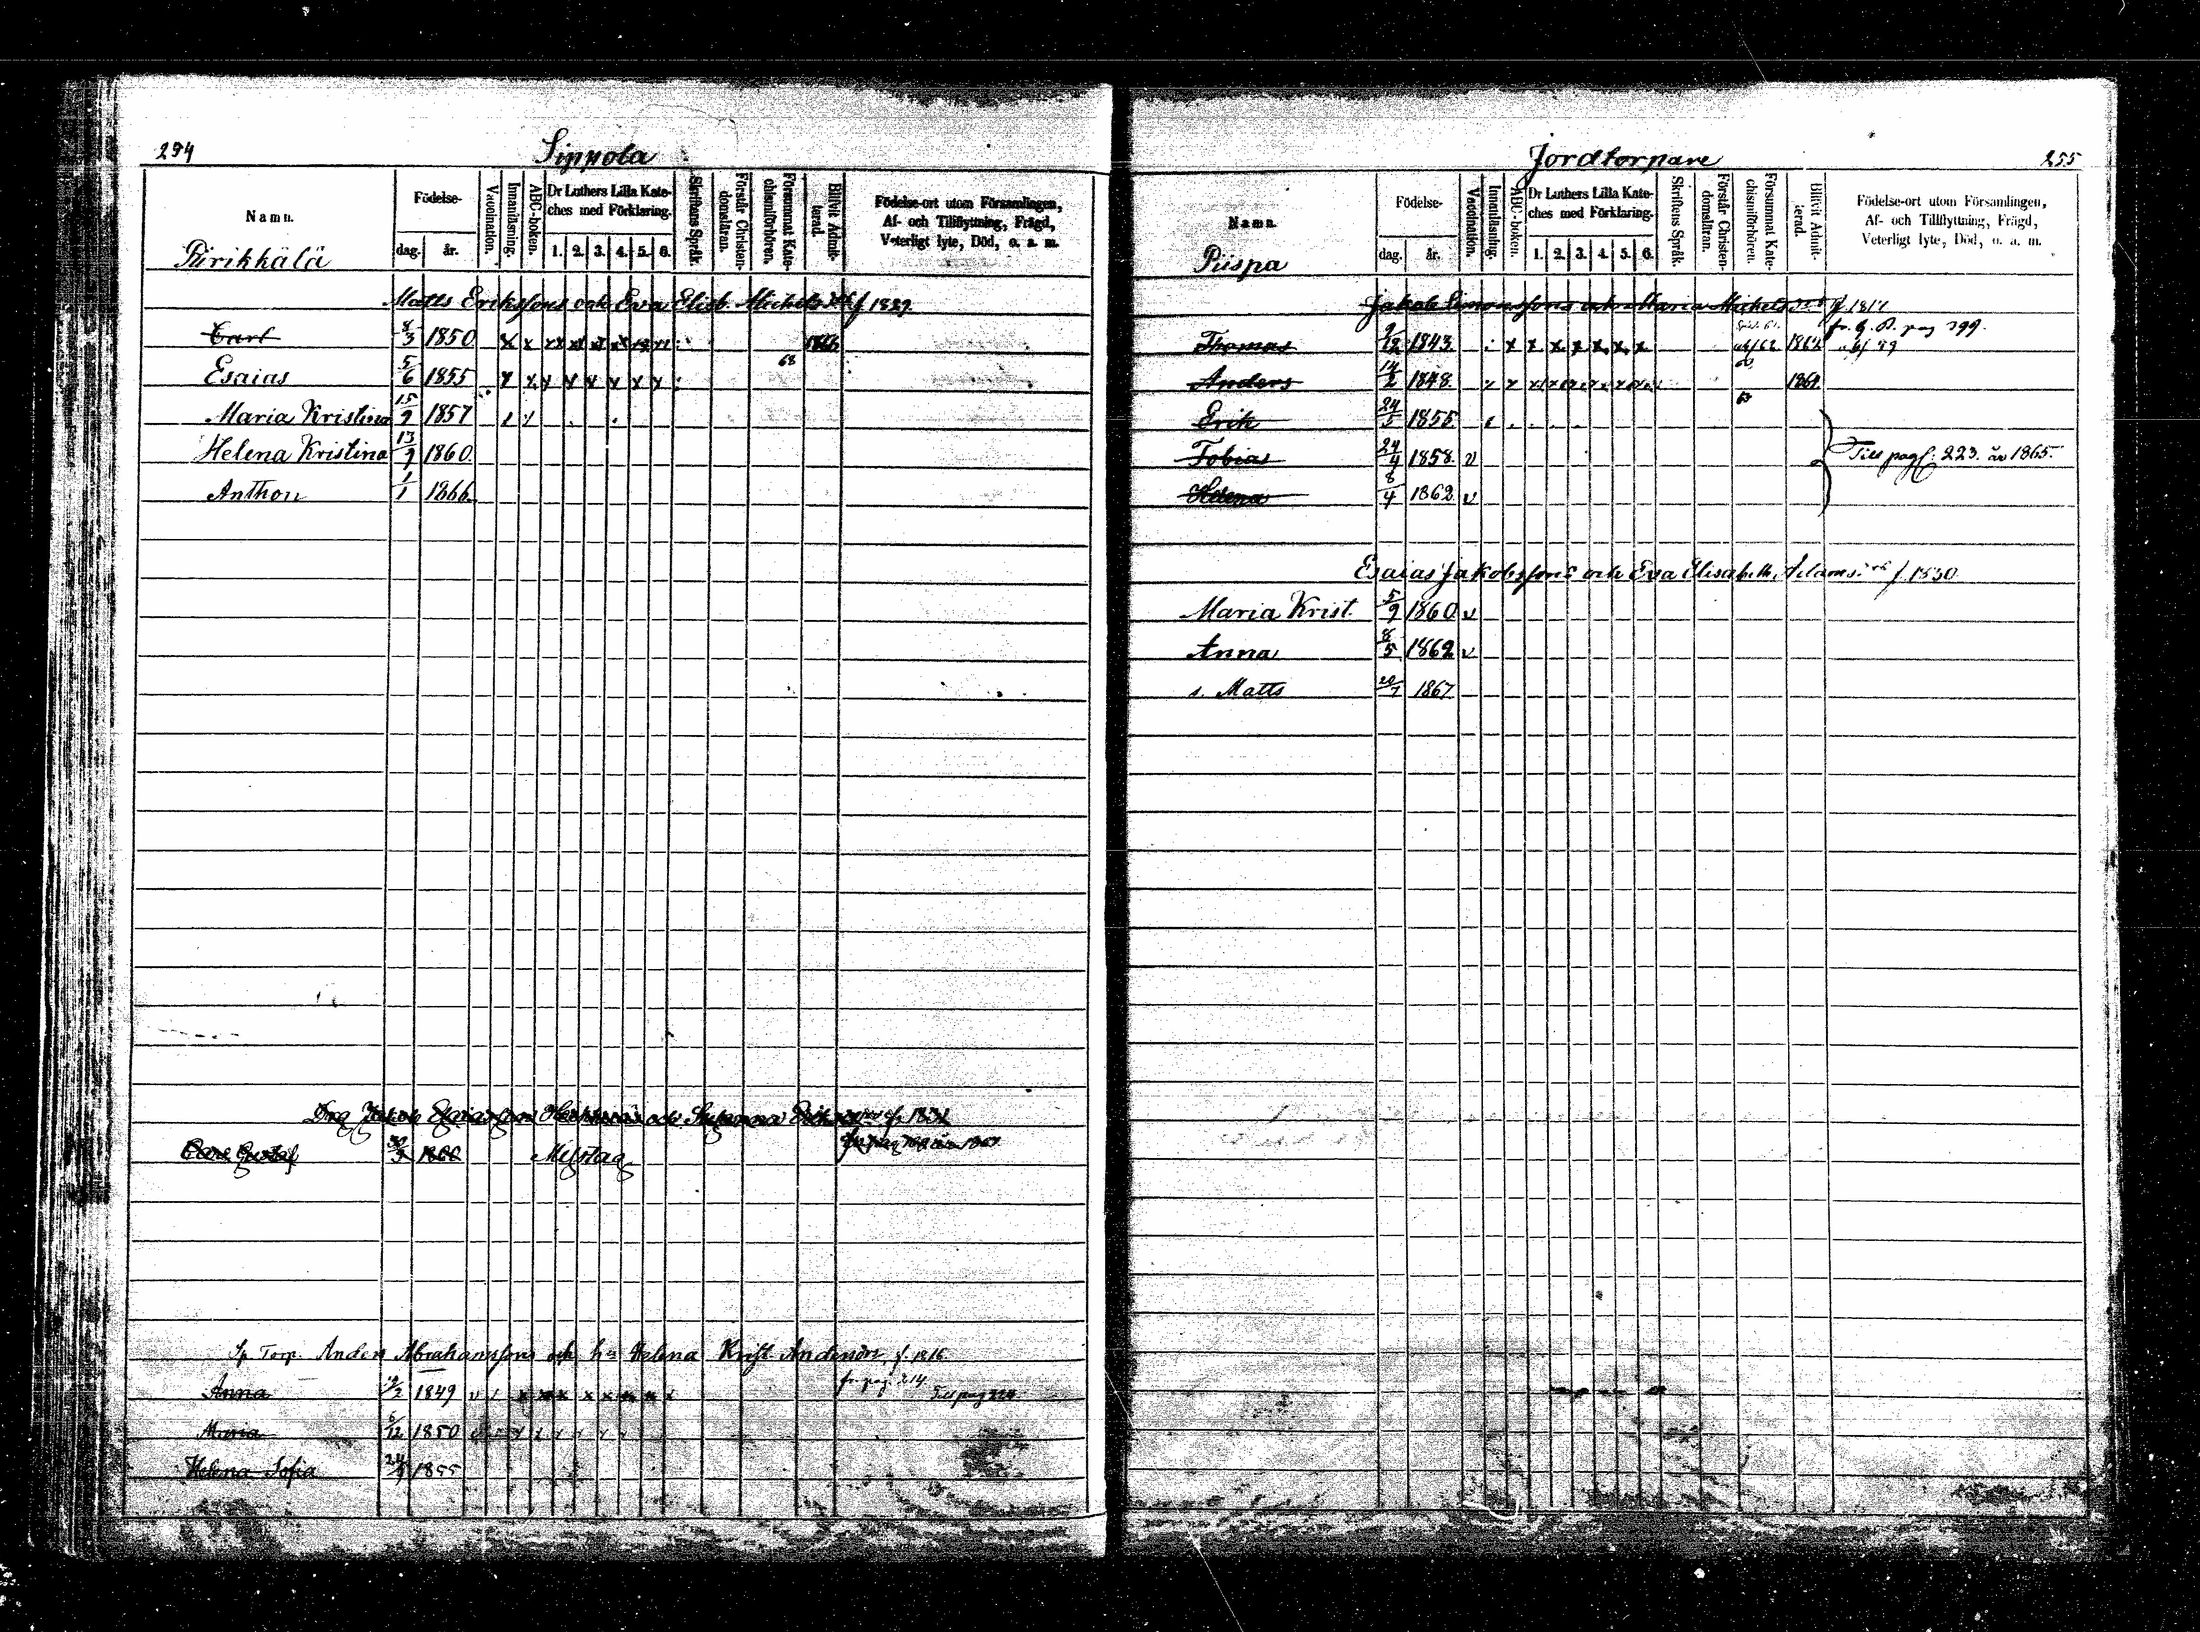 294
Sippola
Namn.
Födelse-
dag.
år.
Vaccination.
Innanläsning.
ABC-boken.
Dr Luthers Lilla Kate-
ches med Förklaring.
1. 2. 3. 4. 5. 6.
Skriftens Språk.
Förstår Christen-
domsläran.
Försummat Kate-
chismiförhören.
Blifvit Admit-
terad.
Födelse-ort utom Församlingen,
Af- och Tillflyttning, Frägd,
Veterligt lyte, Död, o. a. m.
Piirikkälä
Matts Erikssons och Eva Elisb. Michels f 1829.
Carl 8/3 1850 x x 1866
Esaias 5/6 1855 68
Maria Kristina 15/9 1857
Helena Kristina 13/9 1860
Anthon 1/1 1866
Susanna
Carl Gustaf
Torp. Anders Abrahamssons och Helena Krist. f. 1816
Anna 1849 fr. pag. 214. Till pag
Maria 6/12 1850
Helena Sofia 1855
Jordtorpare
255
Namn.
Födelse-
dag.
år.
Vaccination.
Innanläsning.
ABC-boken.
Dr Luthers Lilla Kate-
ches med Förklaring.
1. 2. 3. 4. 5. 6.
Skriftens Språk.
Förstår Christen-
domsläran.
Försummat Kate-
chismiförhören.
Blifvit Admit-
terad.
Födelse-ort utom Församlingen,
Af- och Tillflyttning, Frägd,
Veterligt lyte, Död, o. a. m.
Piispa
Jakob Simonssons och Maria Michels
Thomas 9/12 1843 1862
Anders 14/2 1848
Erik 24/5 1855
Tobias 24/4 1858 v Till pag. 223. år 1865.
Helena 8/4 1862 v
Esaias Jakobssons och Eva Elisabeth Adams f. 1830
Maria Krist. 5/9 1860 v
Anna 8/5 1862 v
s. Matts 20/7 1867